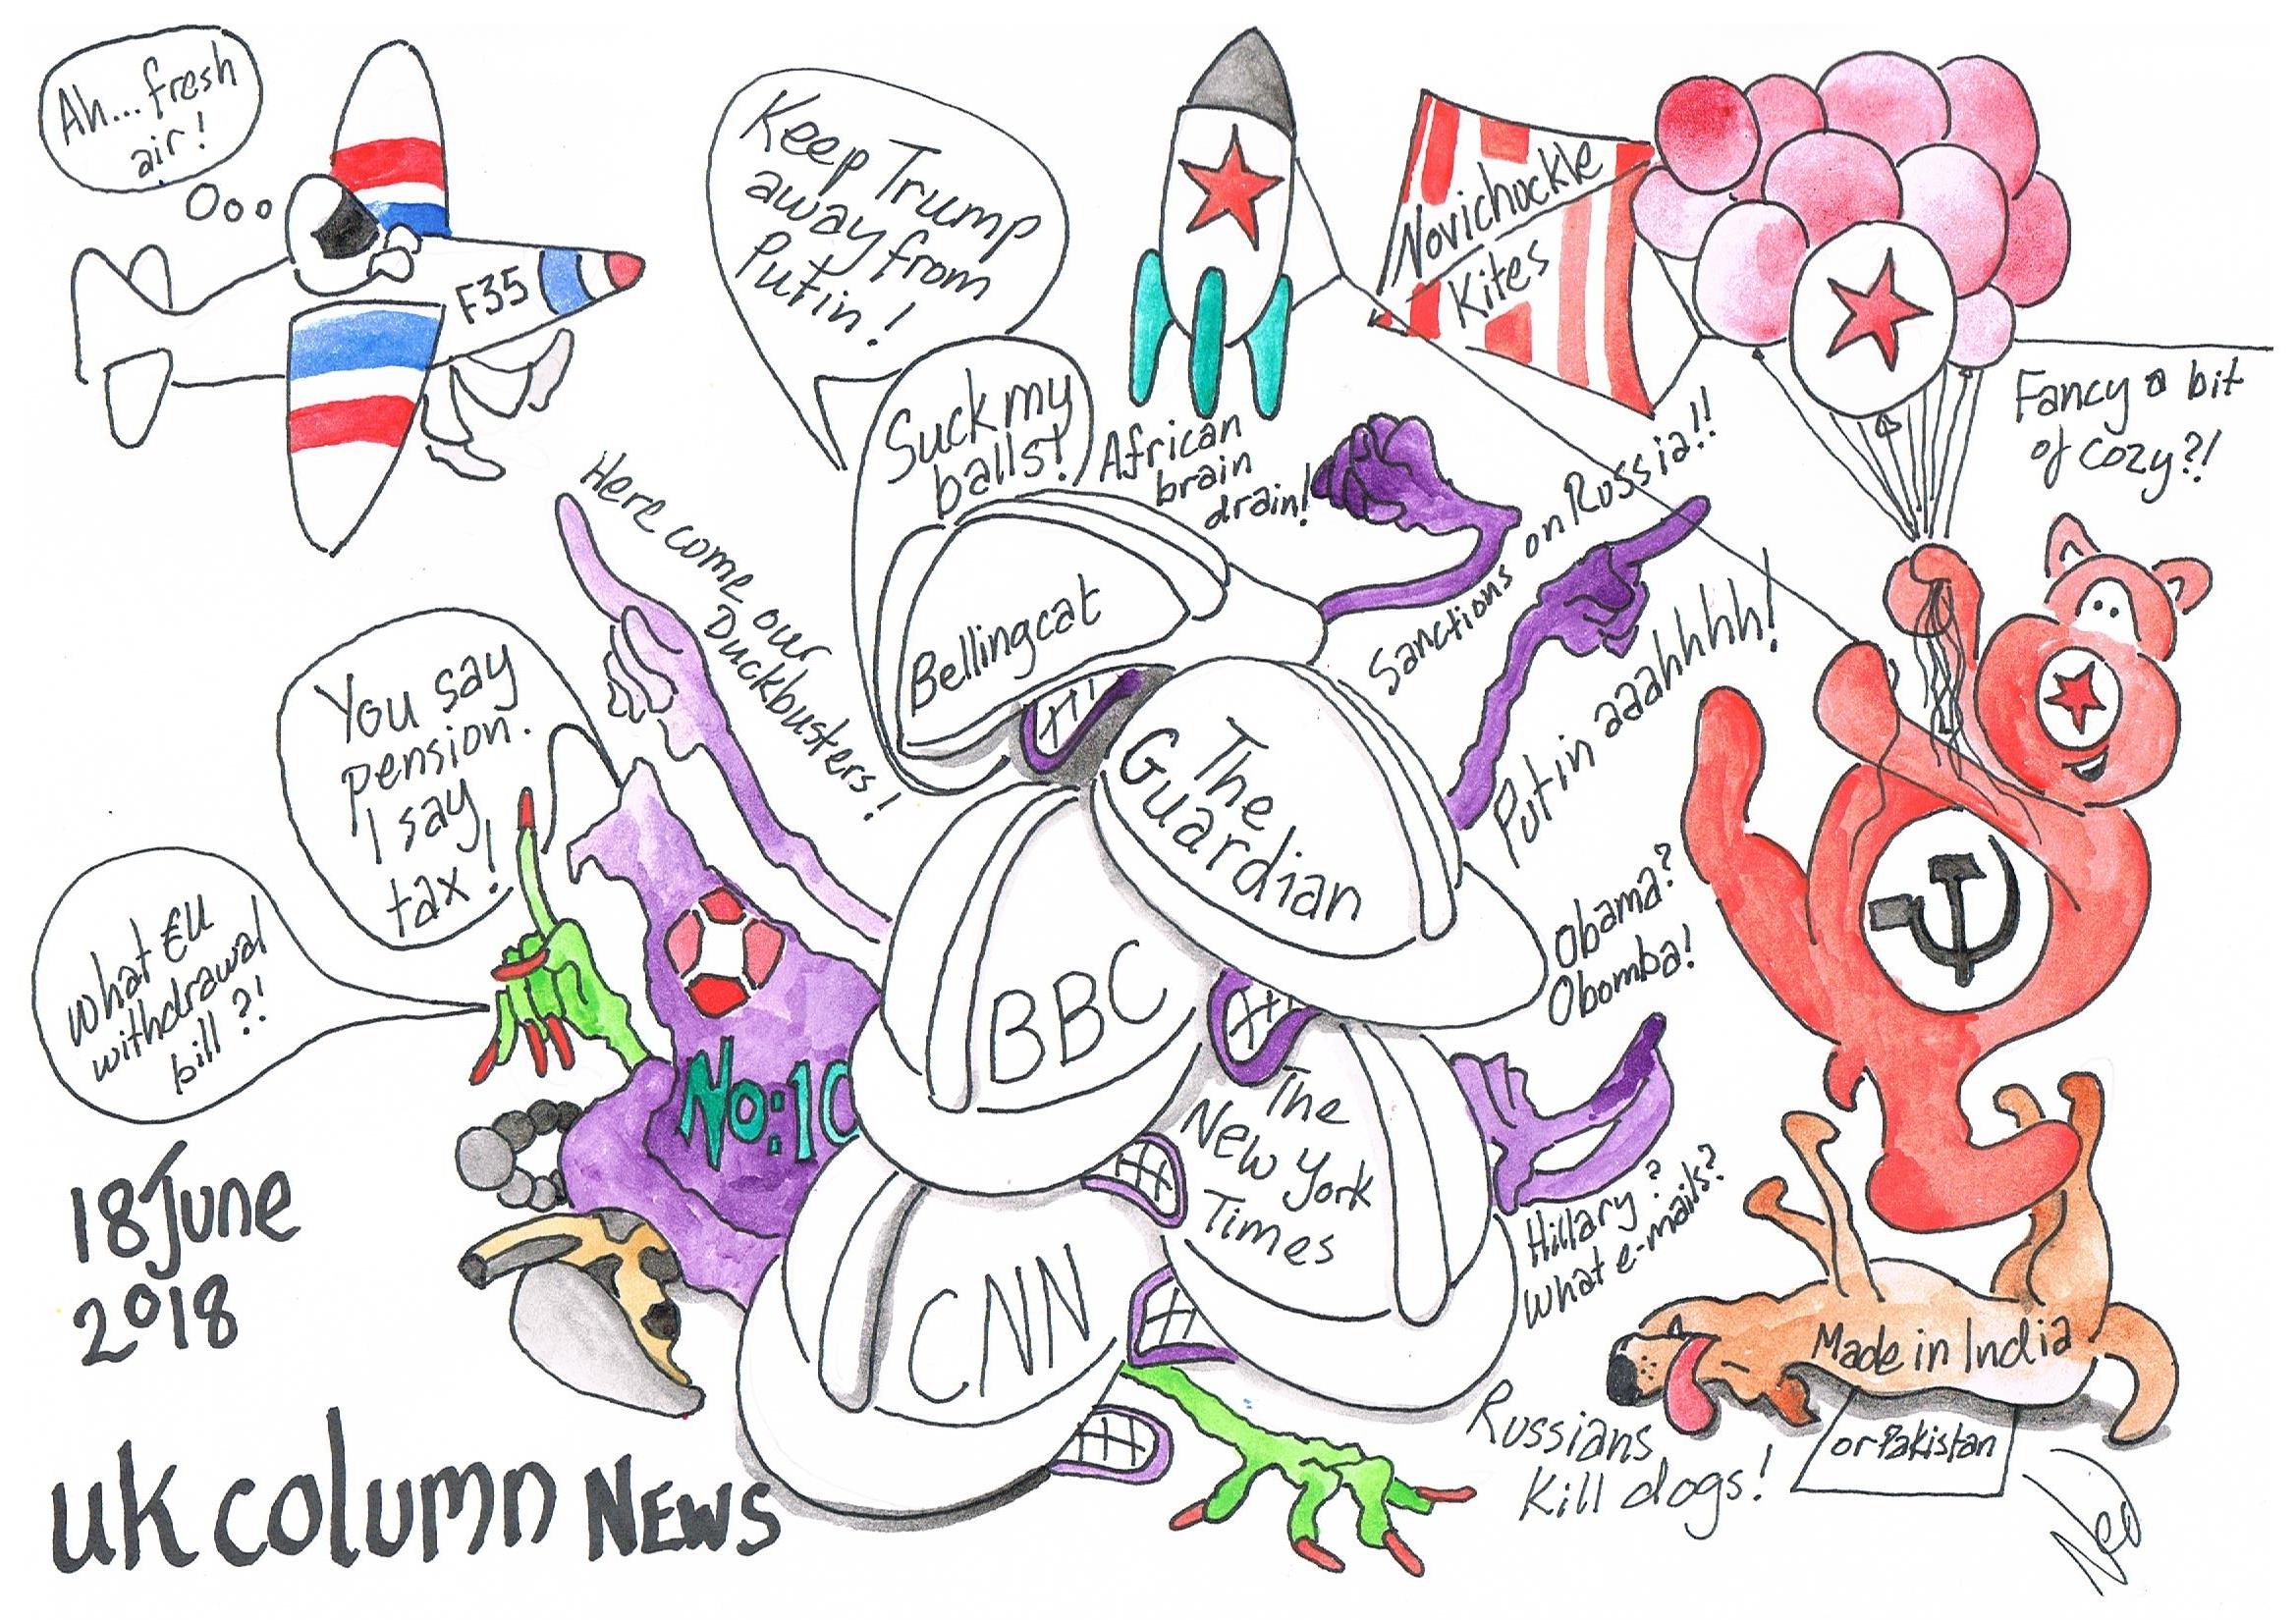 Ah... fresh
air!
F35
Keep Trump
away from
Putin!
Suck my
balls!
African
brain
drain!
Novichuckle
Kites
Fancy a bit
of cozy?!
Here come our
Duckbusters!
Sanctions on Russia!!
Putin aaahhhh!
Bellingcat
The
Guardian
You say
pension.
I say
tax!
What EU
withdrawal
bill?!
BBC
No:10
Obama?
Obomba!
The
New York
Times
Hillary?
What e-mails?
CNN
Made in India
or Pakistan
Russians
Kill dogs!
18 June
2018
UK Column News
Neo